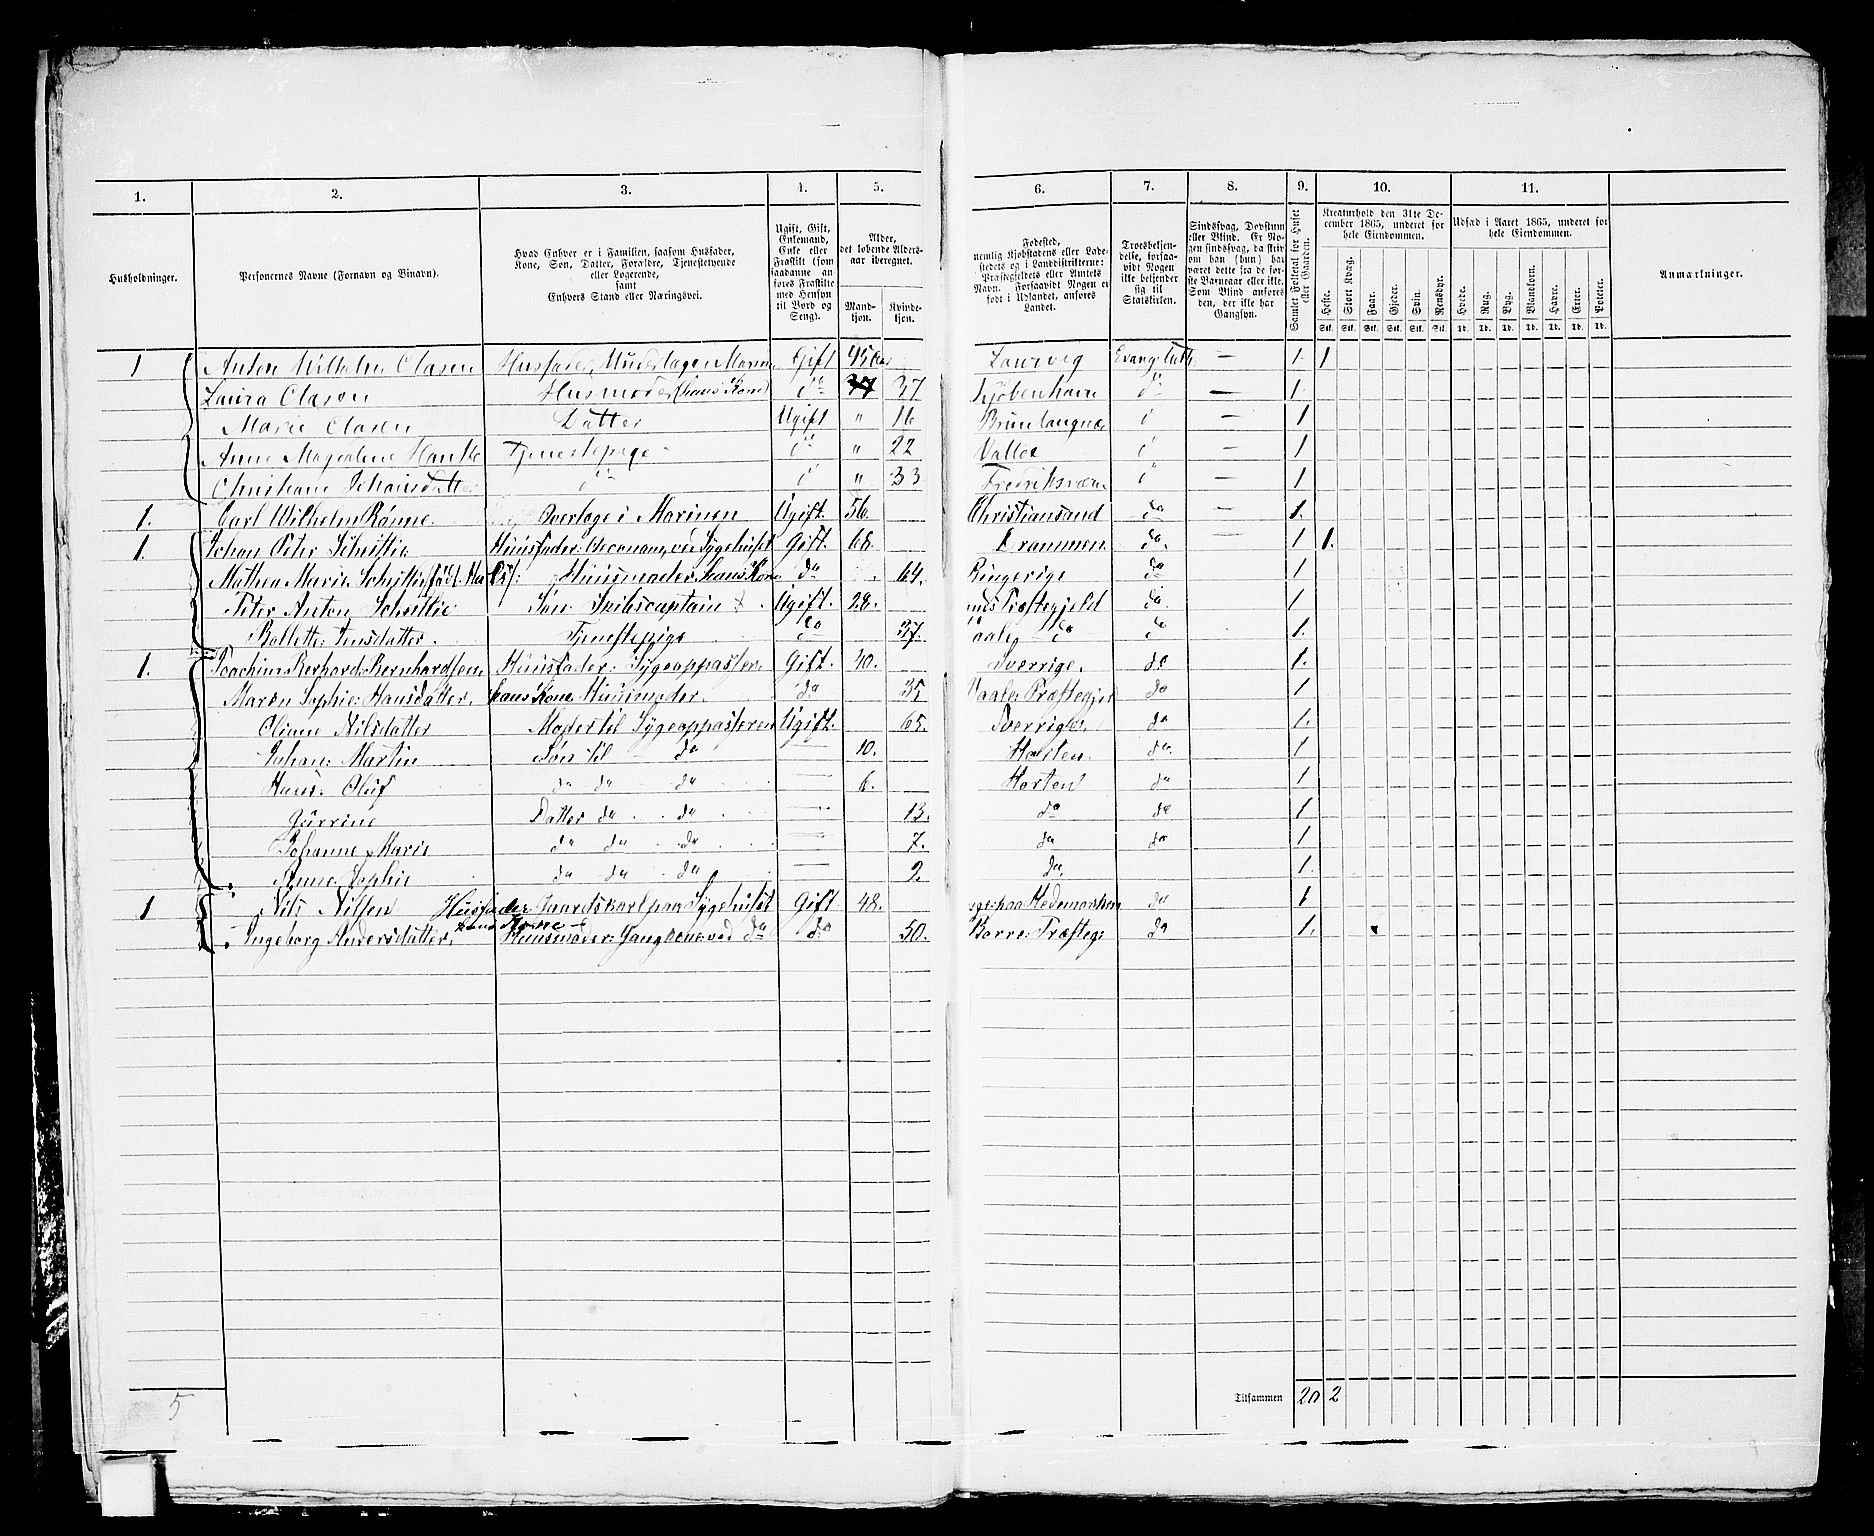 1. 2. 3. 4. 5. 6. 7. 8. 9. 10. 11.
Husholdninger.
Personernes Navne (Fornavn og Binavn).
Hvad Enhver er i Familien, saasom Husfader, Kone, Søn, Datter, Forældre, Tjenestetyende eller Logerende, samt Enhvers Stand eller Næringsvei.
Ugift, Gift, Enkemand, Enke eller Fraskilt (som saadanne anføres Fraskilte med Hensyn til Bord og Seng).
Alder, det løbende Aldersaar iberegnet.
Mandkjøn. Kvindekjøn.
Fødested, nemlig Kjøbstadens eller Ladestedets og i Landdistrikterne: Præstegjeldets eller Amtets Navn. Forsaavidt Nogen er født i Udlandet, anføres Landet.
Troesbekjendelse, forsaavidt Nogen ikke bekjender sig til Statskirken.
Sindssvag, Døvstum eller Blind. Er Nogen sindssvag, da skriv om han (hun) har været dette fra de første Barneaar eller ikke. Som Blind anføres den, der ikke har Gangsyn.
Samlet Folketal for Huset eller Gaarden.
Kreaturhold den 31te December 1865, underet for hele Eiendommen.
Heste. Stort Kvæg. Faar. Gjeder. Svin. Rensdyr.
Udsæd i Aaret 1865, underet for hele Eiendommen.
Hvede. Rug. Byg. Blandkorn. Havre. Erter. Poteter.
Anmærkninger.
1 Anton Wilhelm Clasen Husfader, Underlæge i Marine Gift 45 Laurvig Evang. Luth. — 1. 1
Laura Clasen Husmoder (hans Kone) do 37 37 Kjöbenhavn do — 1
Marie Clasen Datter Ugift " 16 — 1
Anne Magdalene Tjenestepige " 22 Valløe — 1
Christiane " 33 Fredriksværn — 1
1. Carl Wilhelm Rönne. Overlæge i Marinen Ugift. 56. Christiansand do — 1.
1. Johan Peter Huusfader: Oeconom, ved Sygehuset Gift. 68. Drammen do. 1 1.
Mathea Marie Huusmoder. hans Kone do 64. Ringerige do 1
Peter Anton Søn: Skibscaptain Ugift. 28. Præstegjeld do 1
Jensdatter. Tjenestepige do 37. do do 1.
1. Joachim Bernhardsen Huusfader: Sygeoppasser Gift. 40. Sverrige. do 1.
Maren Sophie: Hansdatter. hans Kone Huusmoder. do 35 Vaale Præstegje do 1
Oliane Nilsdatter Moder til Sygeoppasseren Ugift. 65. Sverrige. do 1.
Johan: Martin Søn til do — 10. Horten. do. 1
Hans: Oluf do do do — 6. Horten do 1
Datter do do — 13. do do 1
Johanne Marie do do do — 7. do do 1
Anne: Sophie do do do — 2. do 1.
1 Nils Nilsen Husfader Gaardskarl paa Sygehuset Gift 48. paa Hedemarken do 1
Ingeborg Andersdatter. hans Kone Huusmoder: Gangkone ved do do 50. Borre: Præsteg: do 1.
Tilsammen 20 2
5